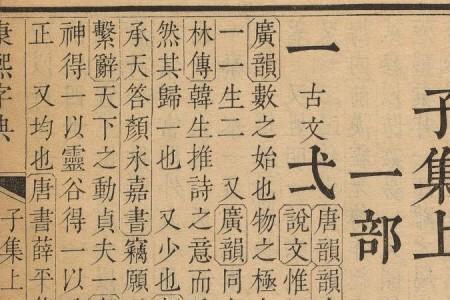 子集上
一部
一 古文弌
唐韻韻
說文惟
廣韻數之始也物之極
一一生二 又廣韻同
林傳韓生推詩之意而
然其歸一也 又少也
承天答顏永嘉書竊願
繫辭天下之動貞夫一
神得一以靈谷得一以
正 又均也唐書薛平
康熙字典 子集上